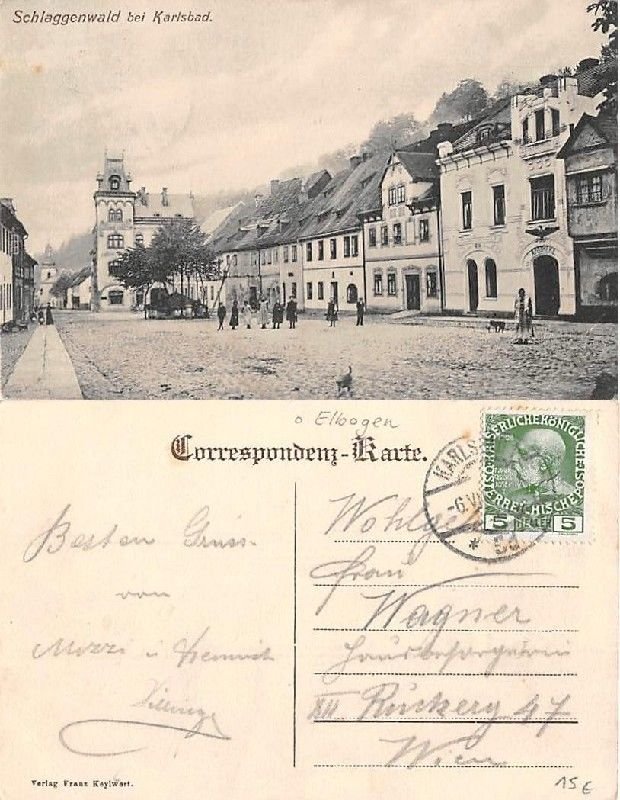 Schlaggenwald bei Karlsbad.
o Elbogen
Correspondenz-Karte.
KARLS
-6.VI
KAISERLICHE KÖNIGLICHE
ÖSTERREICHISCHE POST
5 HELLER 5
Besten Gruss
von
Mizzi u. Heinrich
Wohlge
Frau
Wagner
Hausbesorgerin
XII Rückerg 47
Wien
Verlag Franz Keylwert.
15 E